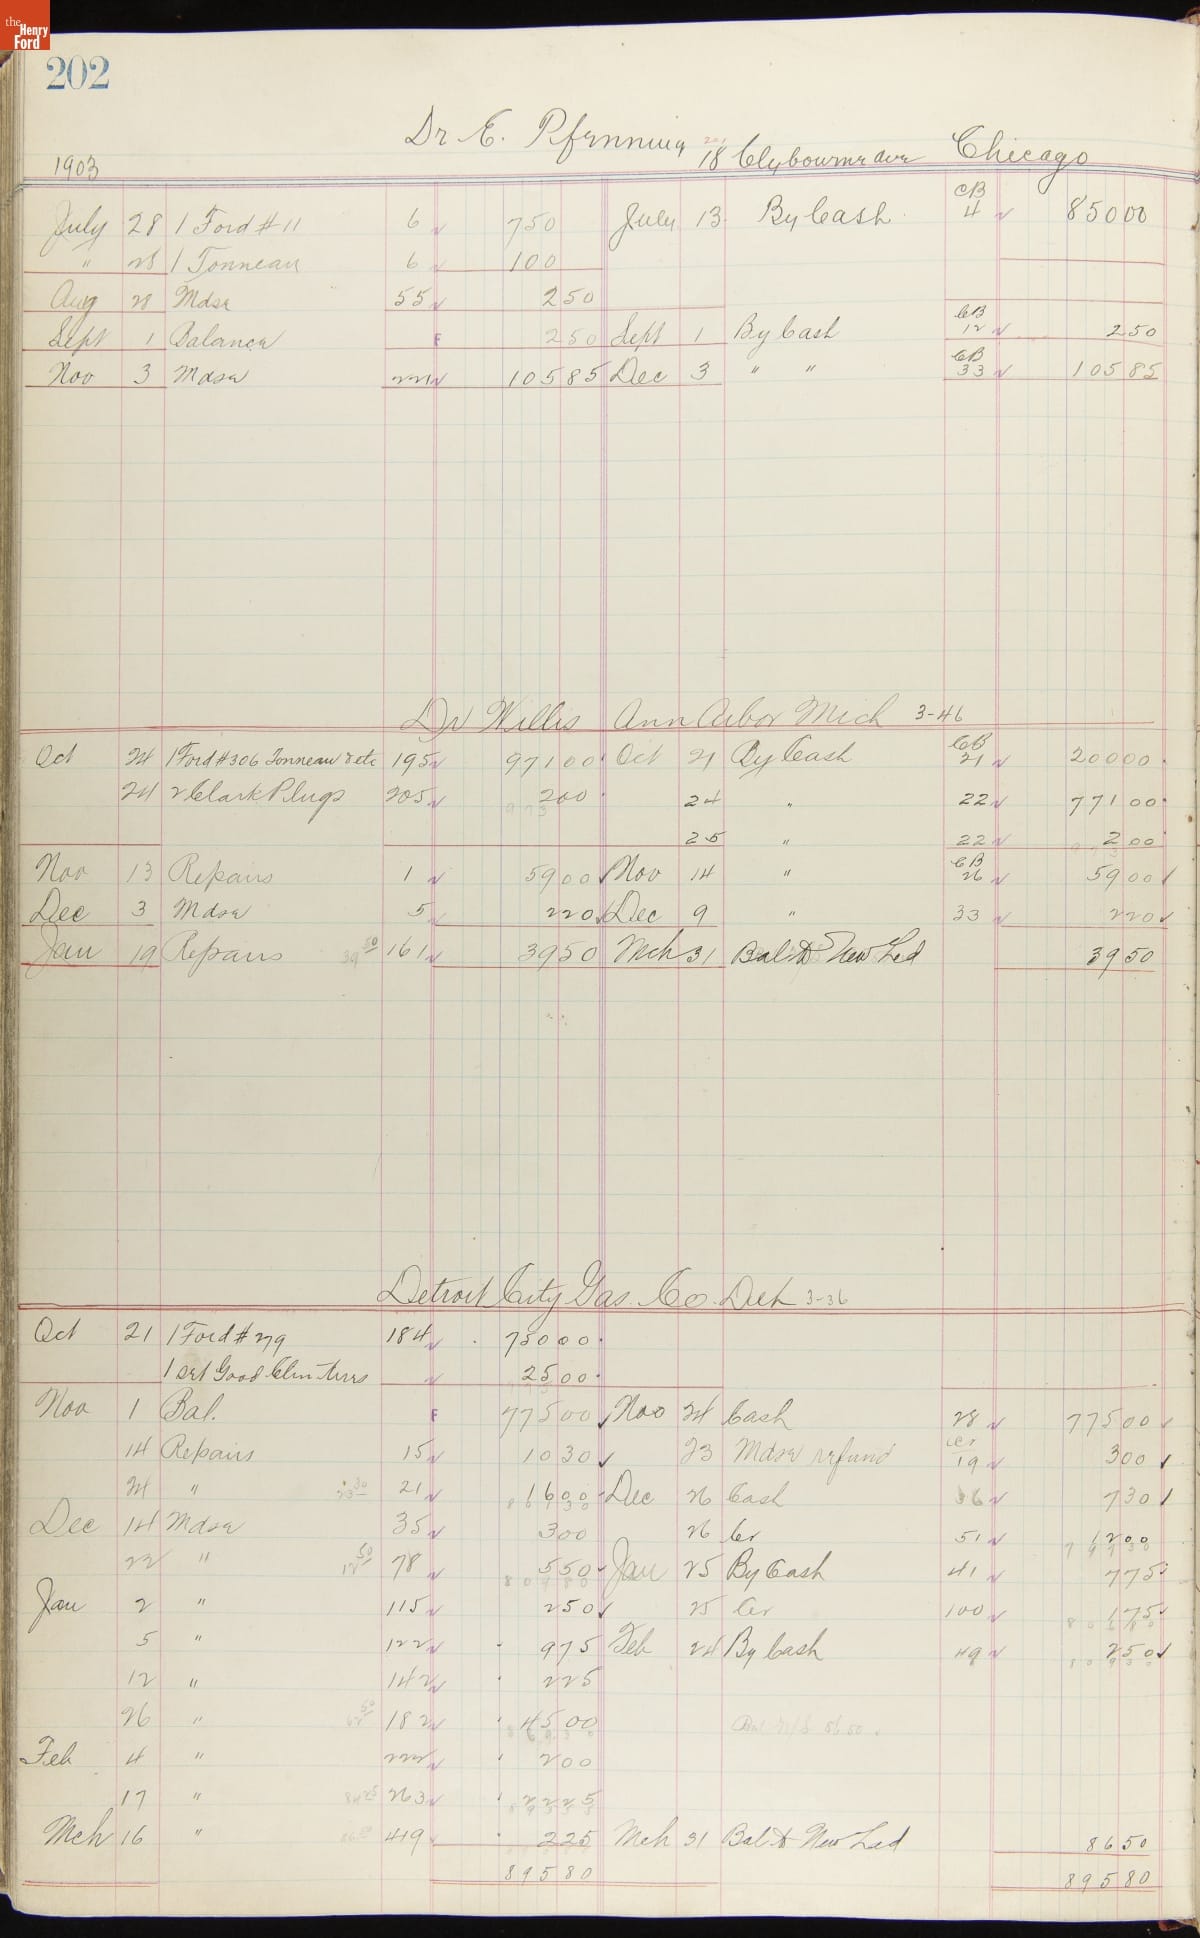 the Henry Ford
202
Dr E. Pfenning 18 Clybourne ave Chicago
1903
July 28 1 Ford # 11 6 750 July 13 By Cash CB 4 850 00
" 28 1 Tonneau 6 100
Aug 28 Mdse 55 2 50
Sept 1 Balance F 2 50 Sept 1 By Cash CB 12 2 50
Nov 3 Mdse 221 105 85 Dec 3 " " CB 33 105 85
Dr Willis Ann Arbor Mich 3-46
Oct 24 1 Ford #306 Tonneau & etc 195 971 00 Oct 21 By Cash CB 21 200 00
24 2 Clark Plugs 205 2 00 24 " 22 771 00
25 " 22 2 00
Nov 13 Repairs 1 59 00 Nov 14 " CB 26 59 00
Dec 3 Mdse 5 2 20 Dec 9 " 33 2 20
Jan 19 Repairs 39 50 161 39 50 Mch 31 Bal to New Led 39 50
Detroit City Gas. Co. Det 3-36
Oct 21 1 Ford # 279 184 750 00
1 set Good 25 00
Nov 1 Bal. F 775 00 Nov 24 Cash 28 775 00
14 Repairs 15 10 30 23 Mdse refund 19 3 00
24 " 21 16 00 Dec 26 Cash 36 7 30
Dec 14 Mdse 35 3 00 26 Cr 51 12 00
22 " 78 5 50 Jan 25 By Cash 41 7 75
Jan 2 " 115 2 50 25 Cr 100 1 75
5 " 122 9 75 Feb 24 By Cash 49 2 50
12 " 142 2 25
26 " 182 45 00
Feb 4 " 222 2 00
17 " 263 22 25
Mch 16 " 419 2 25 Mch 31 Bal to New Led 86 50
895 80 895 80